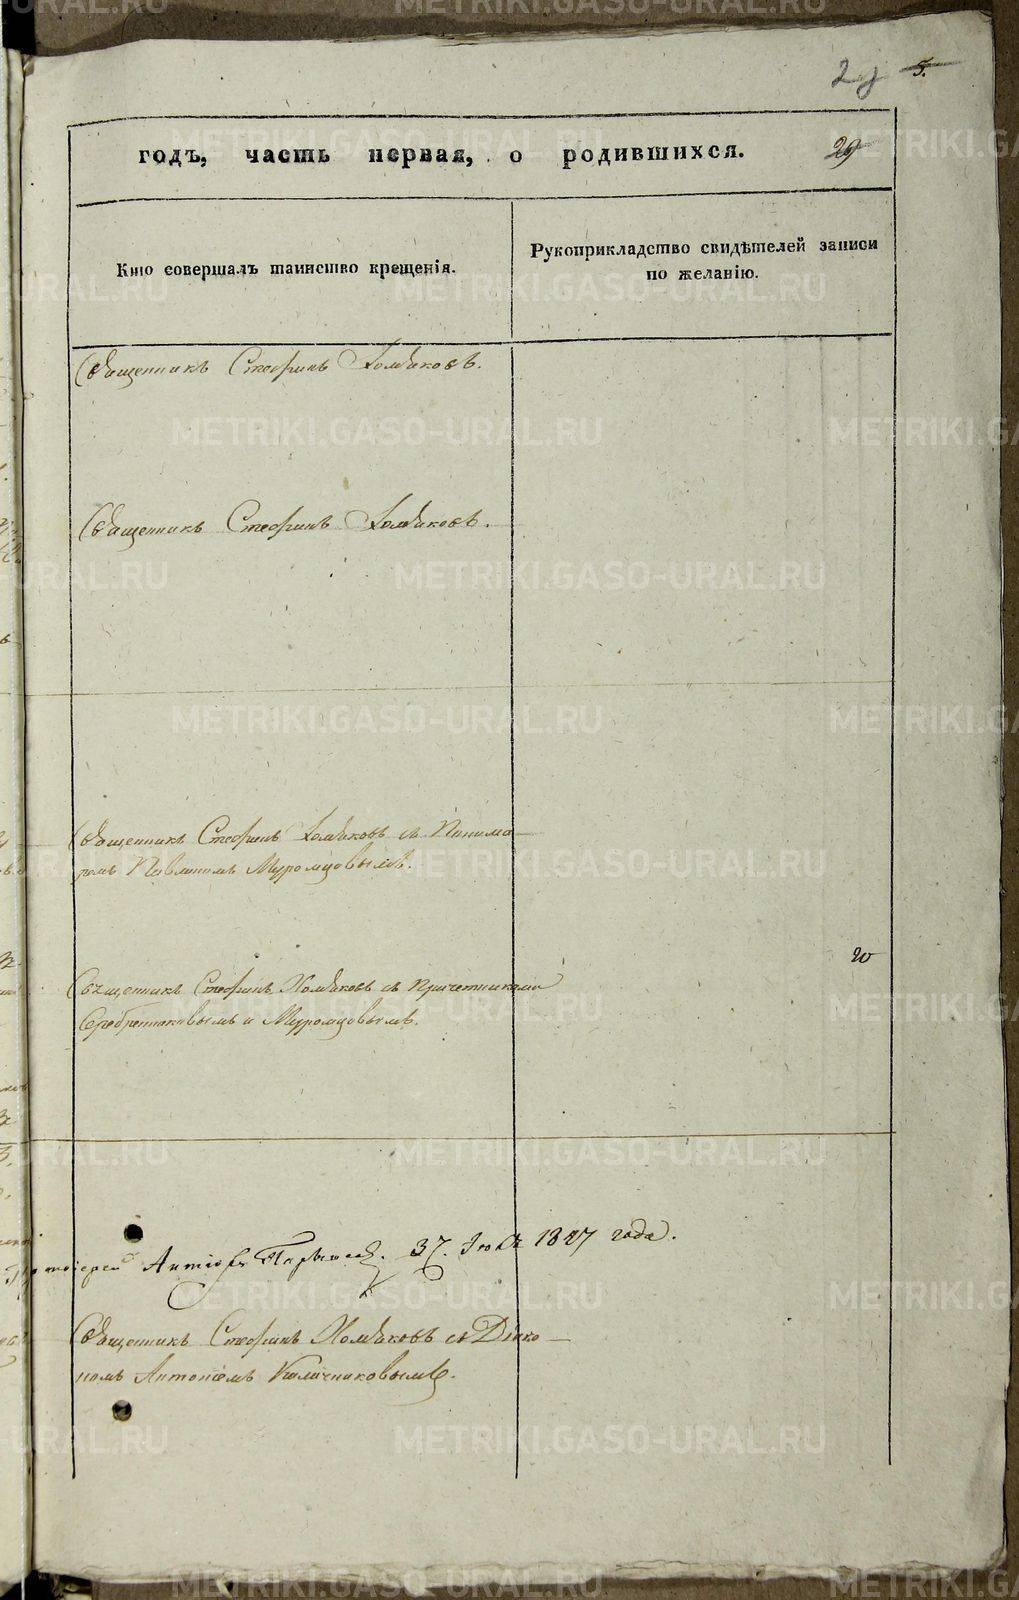 5.
29
годъ, часть первая, о родившихся.
Кто совершалъ таинство крещенія.
Рукоприкладство свидѣтелей записи
по желанію.
Священникъ Стефанъ Хомяковъ.
Священникъ Стефанъ Хомяковъ.
Священникъ Стефанъ Хомяковъ съ Понома-
remъ Муромцовымъ.
20
Священникъ Стефанъ Хомяковъ съ Причетниками
Серебрениковымъ и Муромцовымъ.
Протоіерей 1827 года.
Священникъ Стефанъ Хомяковъ съ Діако-
номъ Антоніемъ Калачниковымъ.
METRIKI.GASO-URAL.RU